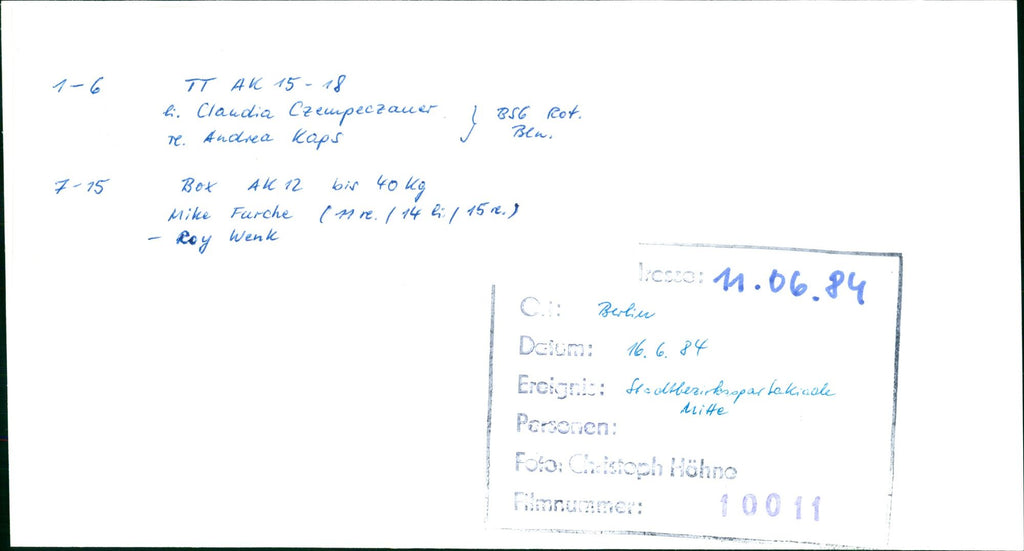 1-6 TT AK 15-18
li. Claudia Czempeczauer } BSG Rot.
re. Andrea Kaps Bln.
7-15 Box AK 12 bis 40 Kg
Mike Furche (11 re. / 14 li. / 15 re.)
- Roy Wenk
11.06.84
Ort: Berlin
Datum: 16.6.84
Ereignis: Stadtbezirksspartakiade
Mitte
Personen:
Foto: Christoph Höhne
Filmnummer: 10011